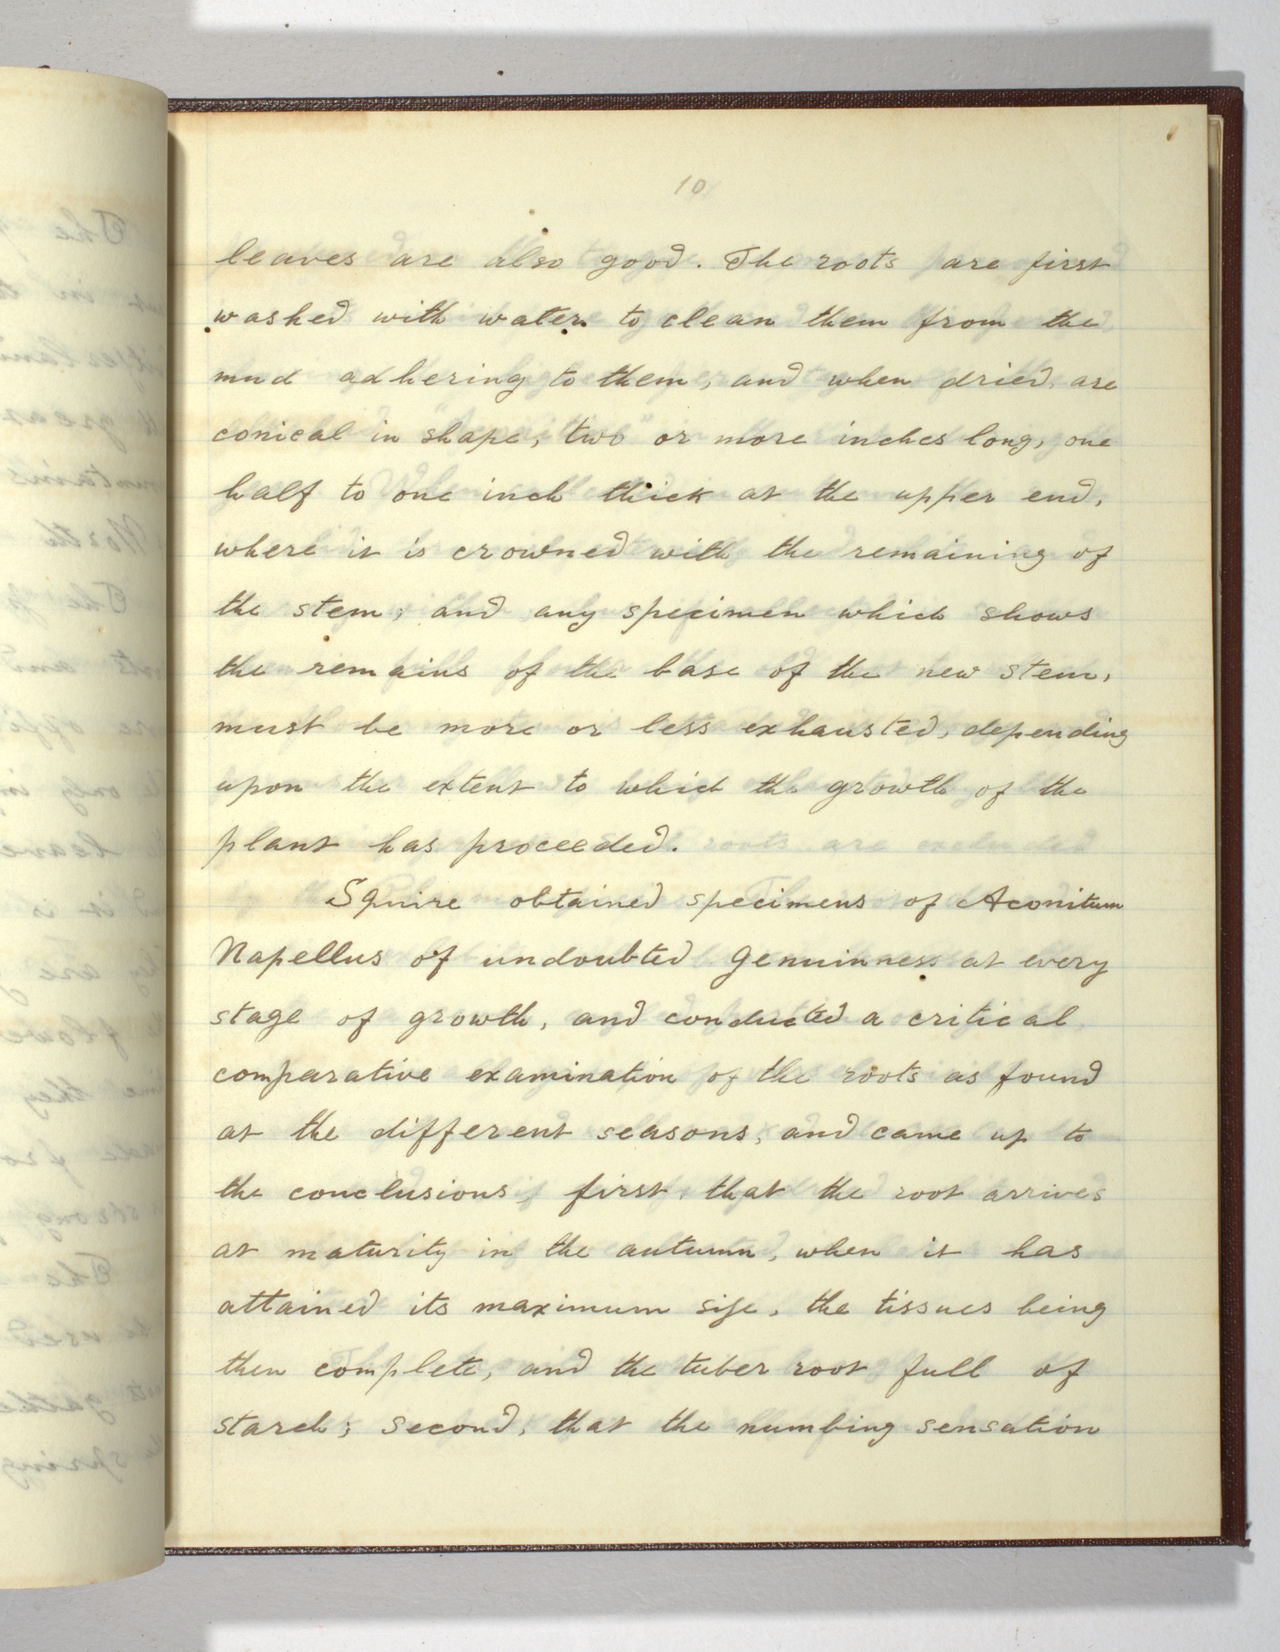 10
leaves are also good. The roots are first
washed with water to clean them from the
mud adhering to them, and when dried, are
conical in shape, two or more inches long, one
half to one inch thick at the upper end,
where it is crowned with the remaining of
the stem; and any specimen which shows
the remains of the base of the new stem,
must be more or less exhausted, depending
upon the extent to which the growth of the
plant has proceeded.
Squire obtained specimens of Aconitum
Napellus of undoubted genuinness at every
stage of growth, and conducted a critical
comparative examination of the roots as found
at the different seasons, and came up to
the conclusions, first, that the root arrives
at maturity in the autumn, when it has
attained its maximum size, the tissues being
then complete, and the tuber root full of
starch; second, that the numbing sensation